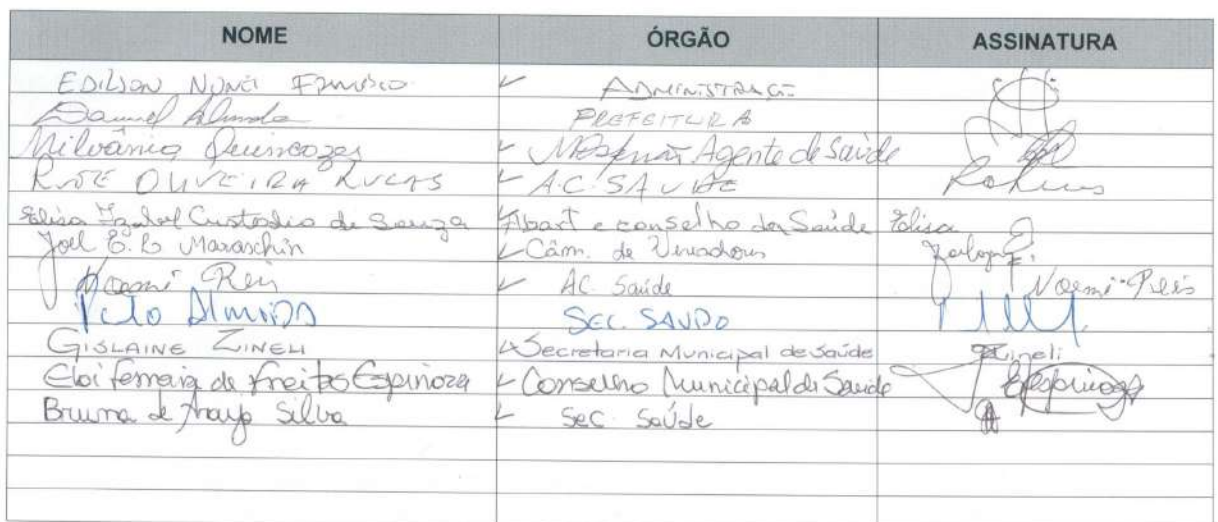 NOME ÓRGÃO ASSINATURA
EDILSON NUNES ADMINISTRAÇÃO
Daniel Almeida PREFEITURA
Milvânia Quincozes Agente de Saúde
RUTE OLIVEIRA LUCAS A.C. SAUDE
Elisa Izabel Custodio de Souza Abart e conselho da Saúde Elisa
Joel E. B Maraschin Câm. de Vereadores
Noemi Reis AC. Saúde Noemi Reis
Almeida SEC. SAUDO
GISLAINE ZINELI Secretaria Municipal de Saúde Zineli
Eloi Ferreira de Freitas Espinoza Conselho Municipal de Saude Espinoza
Bruna de Araujo Silva Sec. Saúde